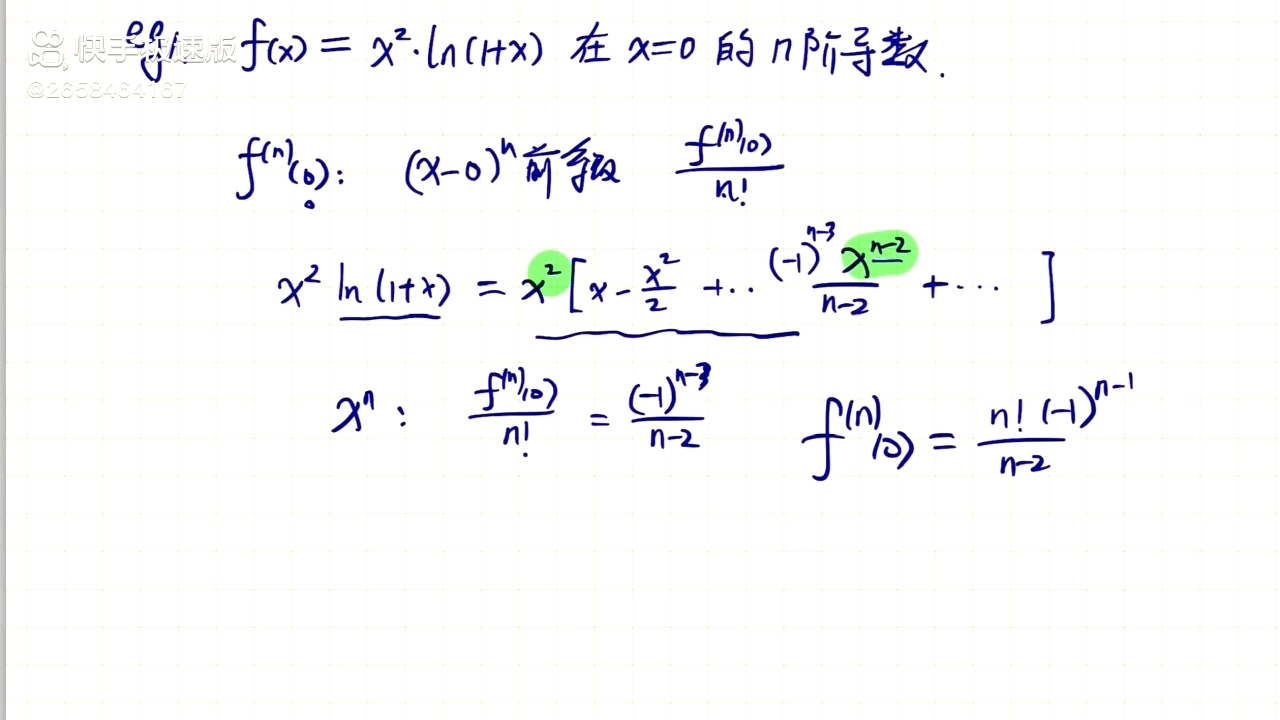 快手极速版
@2658464167
eg1. f(x) = x²·ln(1+x) 在 x=0 的 n阶导数.
f⁽ⁿ⁾(0): (x-0)ⁿ前系数 f⁽ⁿ⁾(0)/n!
x² ln(1+x) = x²[x - x²/2 + ·· (-1)ⁿ⁻³ xⁿ⁻²/(n-2) + ··· ]
xⁿ: f⁽ⁿ⁾(0)/n! = (-1)ⁿ⁻³/(n-2) f⁽ⁿ⁾(0) = n!(-1)ⁿ⁻¹/(n-2)